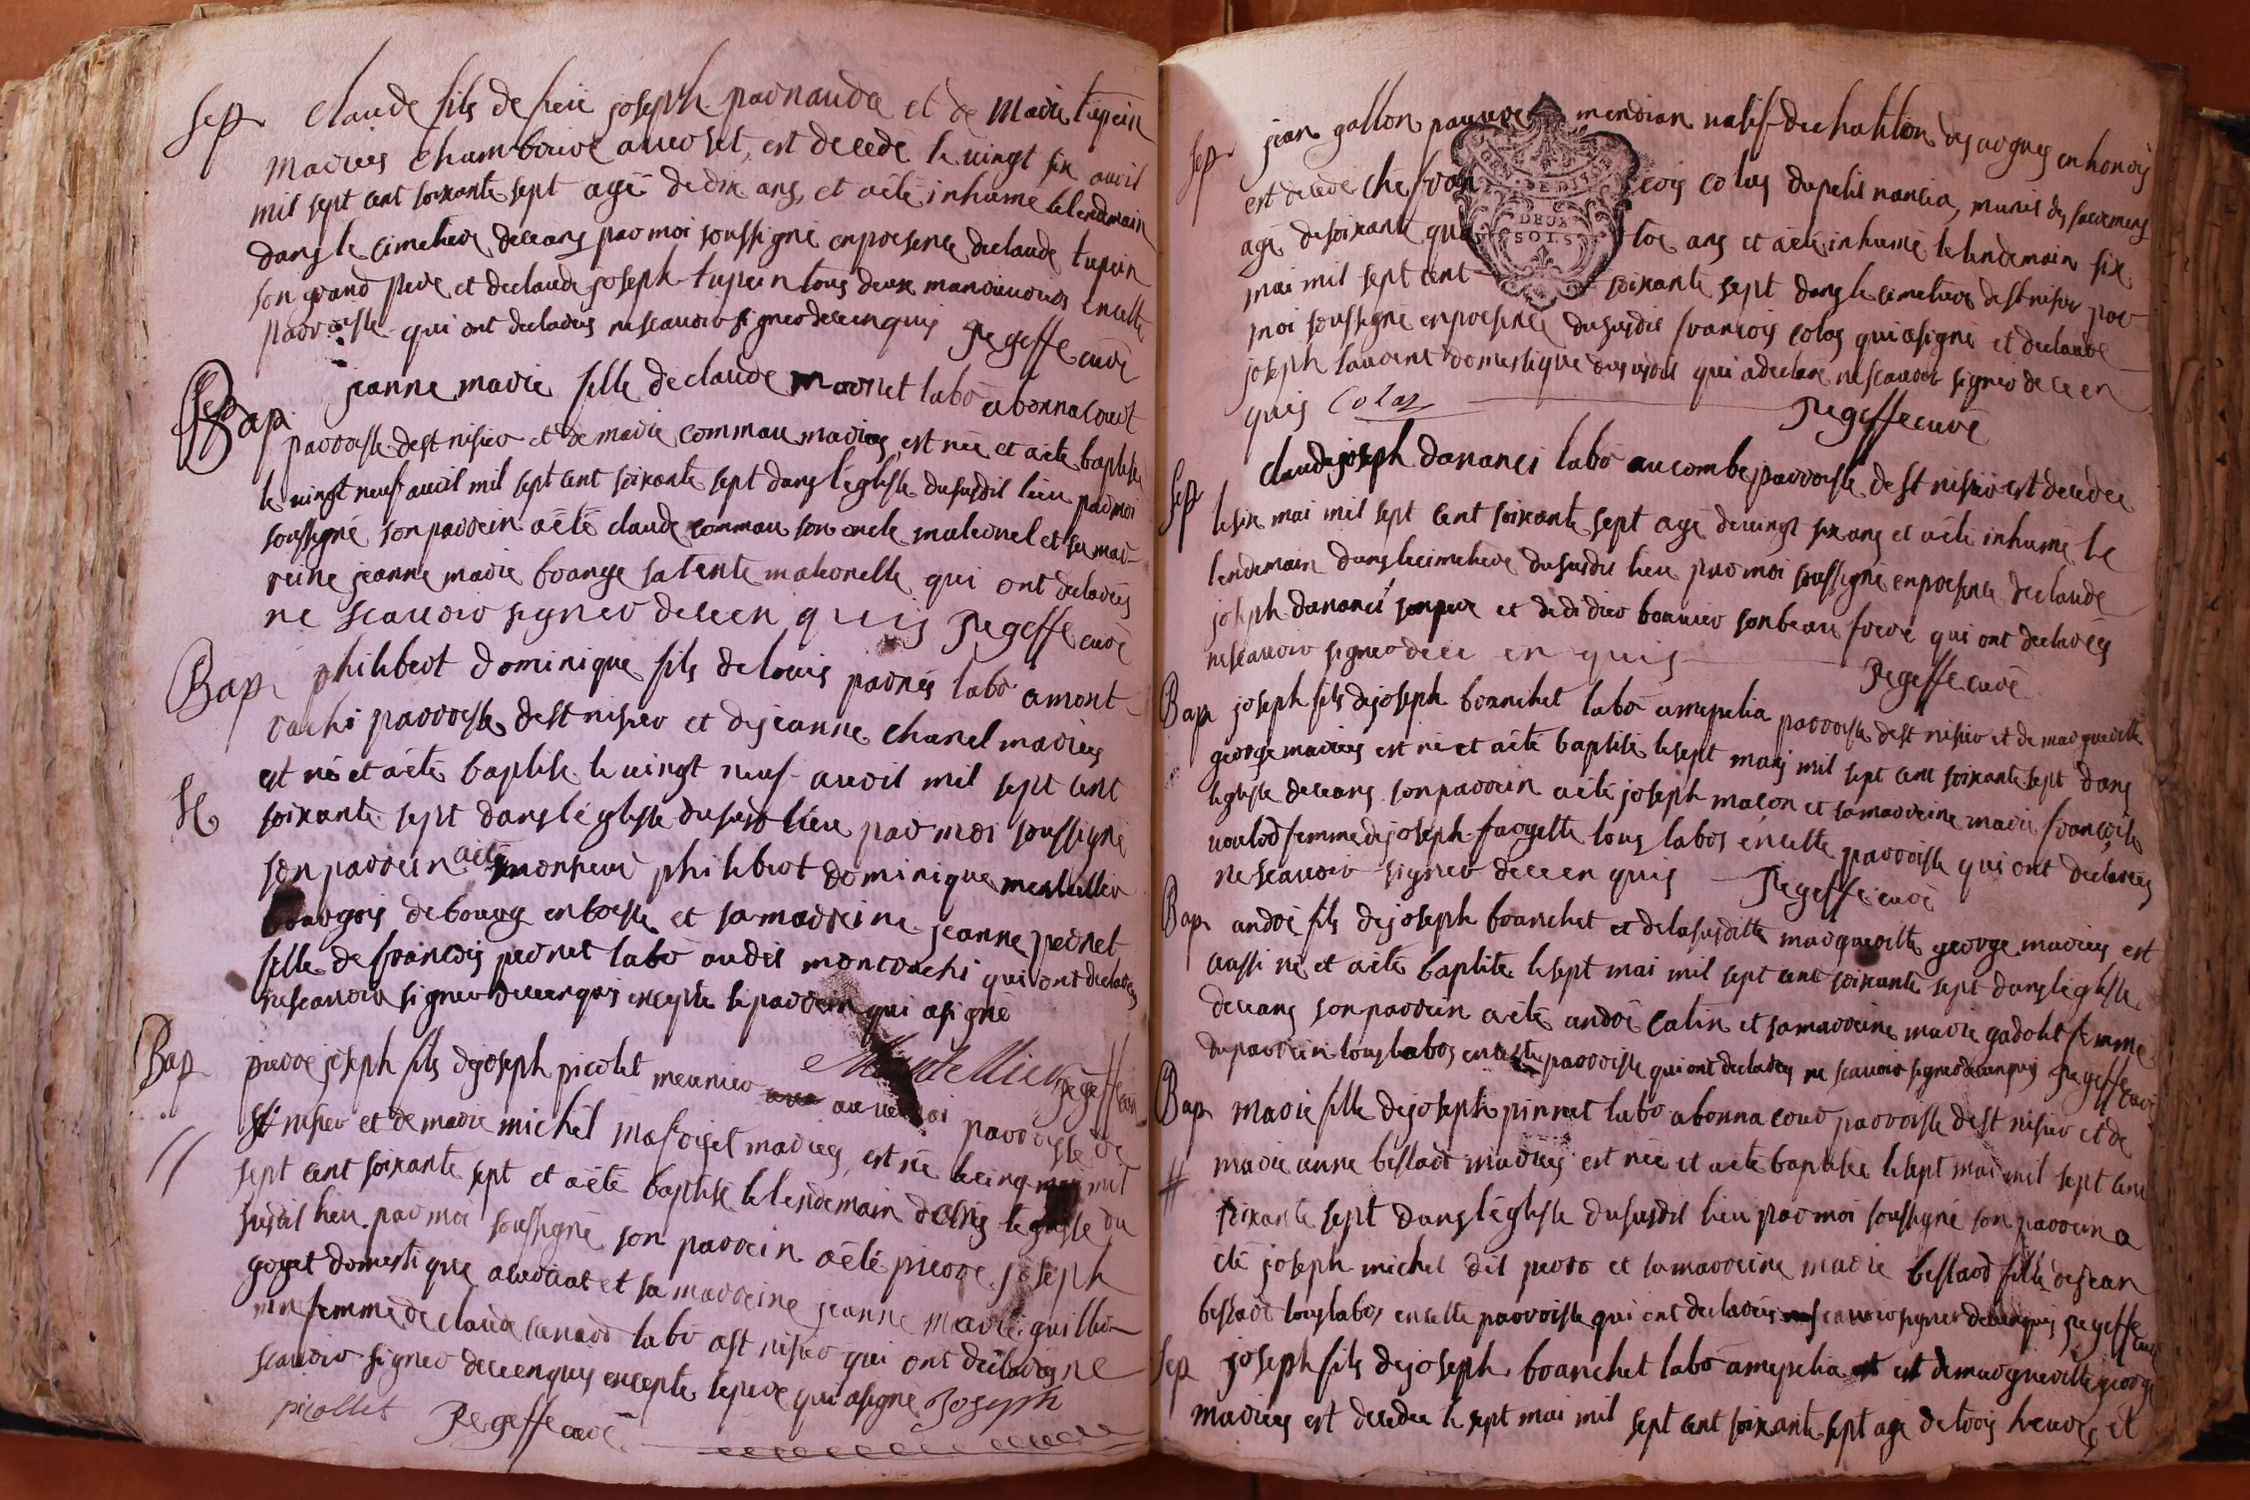 Sep claude fils de feu joseph parnauda et de marie tupein
mariés chambeire auvoset, est decede le vingt six avril
mil sept cent soixante sept agé de dix ans, et a été inhumé le lendmain
dans le cimetiere deceans par moi soussigné en presence de claude tupein
son grand pere et de claude joseph tupein tous deux manoeuvres en cette
parroisse qui ont declarés ne scavoir signer de ce enquis Regeffe curé
Bap jeanne marie fille de claude marnet labō abonnacourt
parroisse de st nisier et de marie commau mariés, est née et a eté baptisée
le vingt neuf avril mil sept cent soixante sept dans l'église du susdit lieu par moi
soussigné son parrein a été claude commau son oncle maternel et sa mar-
reine jeanne marie brange sa tente maternelle qui ont declarés
ne scavoir signer de ce en quis Regeffe curé
Bap philibert dominique fils de louis parnés labō a mont-
rachi parroisse de st nisier et de jeanne chanel mariés
est né et a été baptisé le vingt neuf avril mil sept cent
soixante sept dans l'église du susd lieu par moi soussigné
son parrein a été monsieur philibert dominique
bourgois de bourg en bresse et sa marreine jeanne pernet
fille de francois pernet labō audit montrachi qui ont declarés
ne scavoir signer de ce enquis excepté le parrein qui a signé
Regeffe curé
Bap pierre joseph fils de joseph picolet meunier parroisse de
st nisier et de marie michel mariés, est né le cinq mai mil
sept cent soixante sept et a été baptisé le lendemain dans l'eglise du
susdit lieu par moi soussigné son parrein a été pierre joseph
goyet domestique et sa marreine jeanne marie guille-
min femme de claude renard labō a st nisier qui ont declarés ne
scavoir signer de ce enquis excepté le pere qui a signé Joseph
picollet Regeffe curé
Sep jean gallon pauvre mendian natif de chatillon
est decede chés francois colas du petit nancia, munis des sacremens
agé de soixante quatre ans et a été inhumé le lendemain six
mai mil sept cent soixante sept dans le cimetiere de st nisier par
GEN. DE DIJON
DEUX
SOLS
moi soussigné en presence du susdit francois colas qui a signé et de claude
joseph laurent domestique du susdit qui a declaré ne scavoir signer de ce en
quis Colas Regeffe curé
Sep claude joseph dananci labō au combe parroisse de st nisier est decedée
le six mai mil sept cent soixante sept agé de vingt six ans et a été inhumé le
lendemain dans le cimetiere du susdit lieu par moi soussigné en presence de claude
joseph dananci son pere et de didier bouvier son beau frere qui ont declarés
ne scavoir signer de ce en quis Regeffe curé
Bap joseph fils de joseph branchet labō a mepelia parroisse de st nisier et de marguerite
george mariés est né et a été baptisé le sept mai mil sept cent soixante sept dans
l'eglise deceans son parrein a été joseph maçon et sa marreine marie francoise
voulod femme de joseph fargette tous labos en cette parroisse qui ont declarés
ne scavoir signer de ce en quis Regeffe curé
Bap andré fils de joseph branchet et de la susditte marguerite george mariés est
aussi né et a été baptisé le sept mai mil sept cent soixante sept dans l'eglise
deceans son parrein a été andré catin et sa marreine marie gadolet femme
du parrein tous labos en cette parroisse qui ont declarés ne scavoir signer de ce enquis Regeffe curé
Bap marie fille de joseph pinnet labō abonna cour parroisse de st nisier et de
marie anne bessard mariés est née et a été baptisée le sept mai mil sept cent
soixante sept dans l'église du susdit lieu par moi soussigné son parrein a
été joseph michel dit perro et sa marreine marie bessard fille de jean
bessard tous labos en cette parroisse qui ont declarés ne scavoir signer de ce enquis Regeffe curé
Sep joseph fils de joseph branchet labō a mepelia et de marguerite george
mariés est decedée le sept mai mil sept cent soixante sept agé de trois heures et